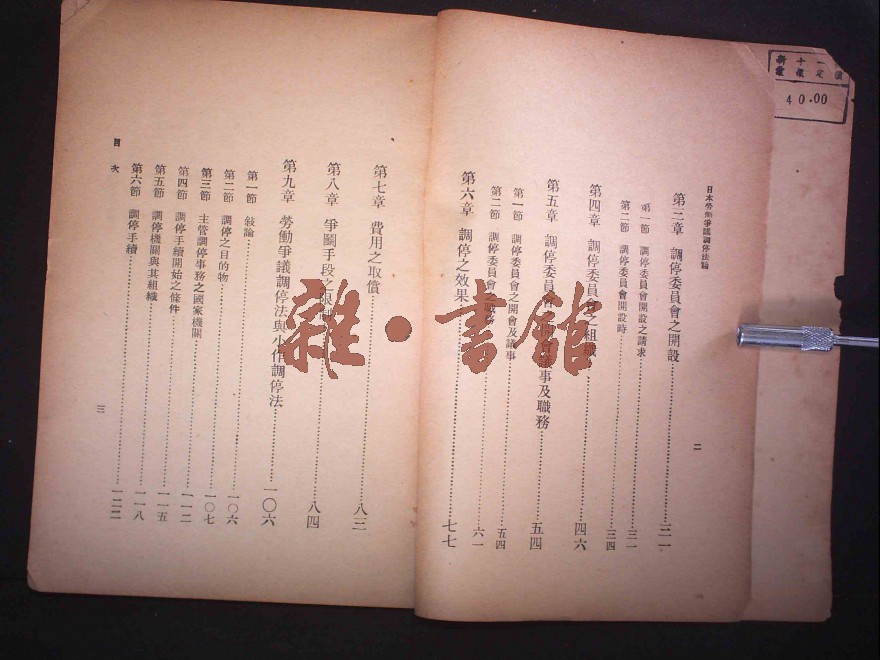 日本勞働爭議調停法論
二
第三章 調停委員會之開設……三一
第一節 調停委員會開設之請求……三一
第二節 調停委員會開設時……三四
第四章 調停委員會之組織……四六
第五章 調停委員會 議事及職務……五四
第一節 調停委員會之開會及議事……五四
第二節 調停委員會之職務……六一
第六章 調停之效果……七七
第七章 費用之取償……八三
第八章 爭鬭手段之限制……八四
第九章 勞働爭議調停法與小作調停法……一〇六
第一節 敍論……一〇六
第二節 調停之目的物……一〇六
第三節 主管調停事務之國家機關……一〇七
第四節 調停手續開始之條件……一一二
第五節 調停機關與其組織……一一五
第六節 調停手續……一二二
一一八
目次
三
40.00
雜·書館